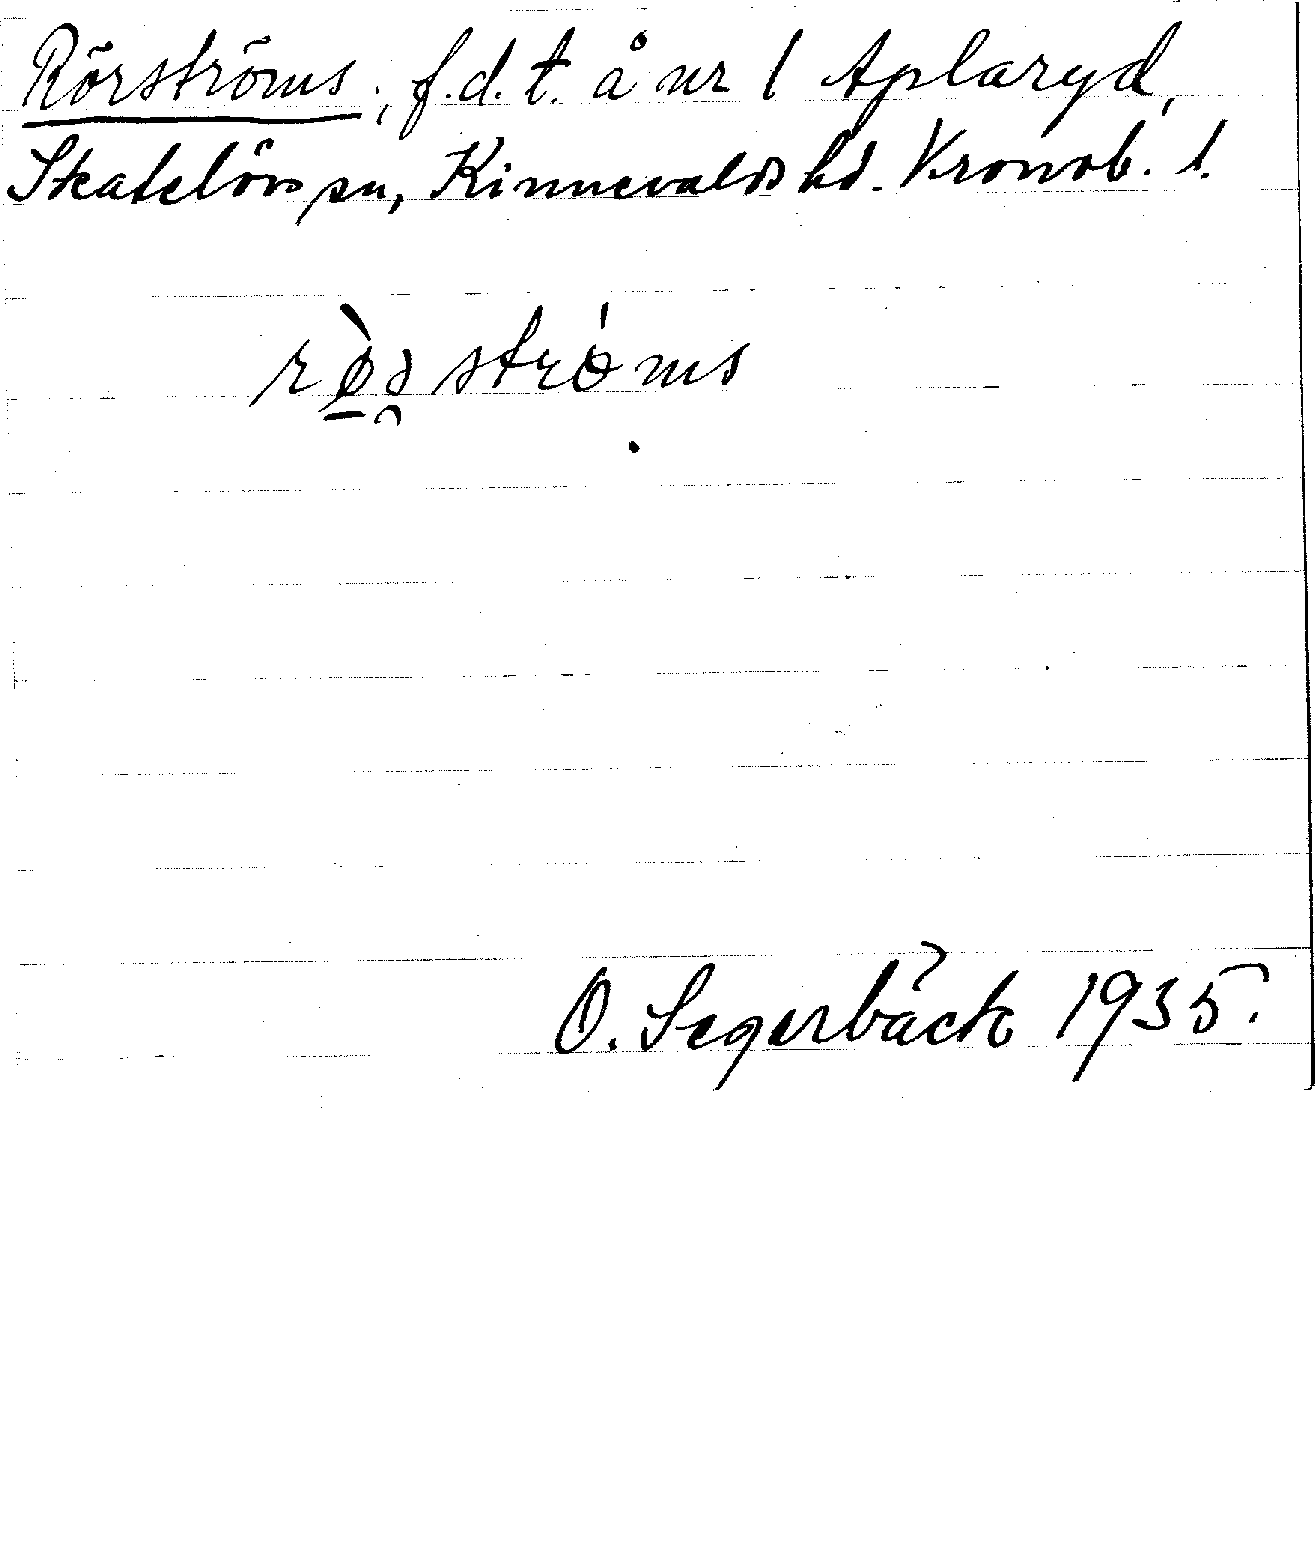 Rörströms; f.d. t. å nr 1 Aplaryd,
Skatelövs sn, Kinnevalds hd. Kronob. l.
rø̀ə strǿms
O. Segerbäck 1935.